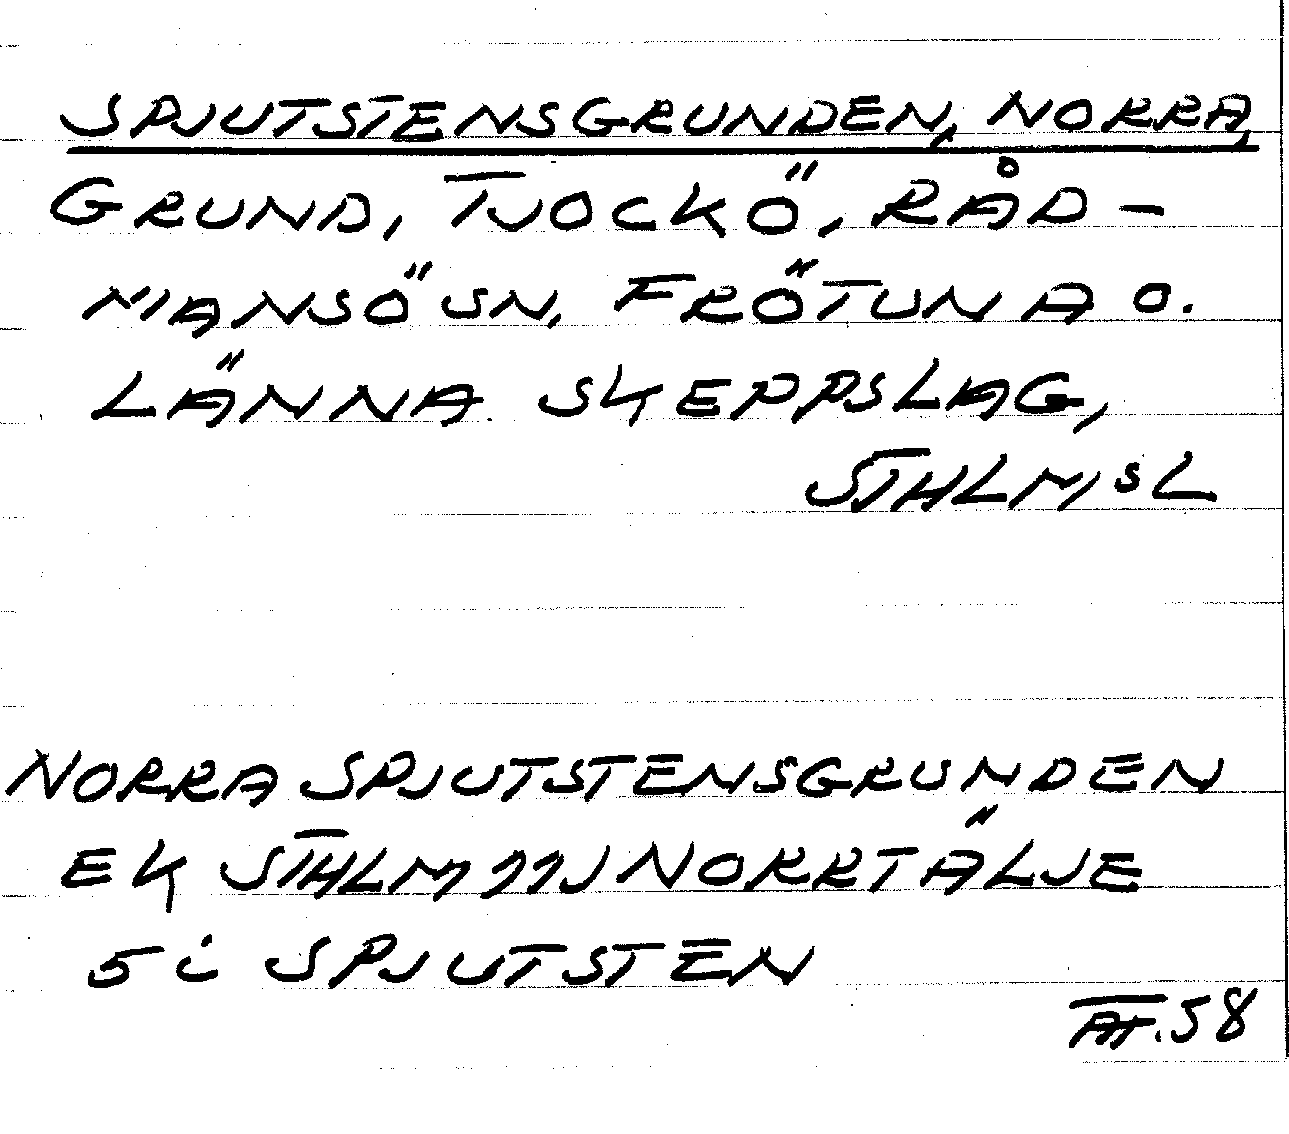 SPJUTSTENSGRUNDEN, NORRA,
GRUND, TJOCKÖ, RÅD-
MANSÖ SN, FRÖTUNA O.
LÄNNA SKEPPSLAG,
STHLMS L
NORRA SPJUTSTENSGRUNDEN
EK STHLM 11J NORRTÄLJE
5i SPJUTSTEN
58